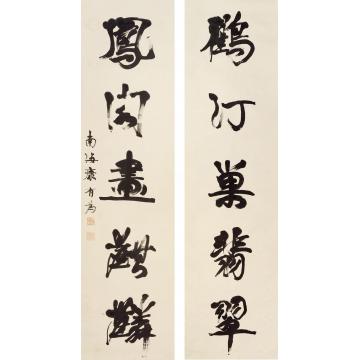 鶴汀巢翡翠
鳳閣畫麒麟
南海康有為